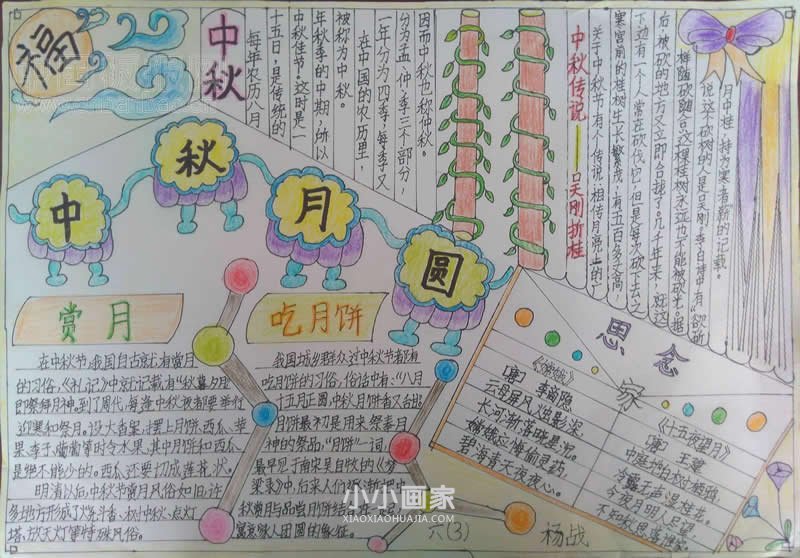 福
中秋
每年农历八月
十五日，是传统的
中秋佳节。这时是一
年秋季的中期，所以
被称为中秋。
在中国的农历里，
一年分为四季，每季又
分为孟、仲、季三个部分，
因而中秋也称仲秋。
中秋传说——吴刚折桂
关于中秋节有个传说：相传月亮上的广
寒宫前的桂树生长繁茂，有五百多丈高，
下边有一个人常在砍伐它，但是每次砍下去之
后，被砍的地方又立即合拢了。几千年来，就这
样随砍随合，这棵桂树永远也不能被砍光。据
说这个砍树的人是吴刚。李白诗中有“欲斫
月中桂，持为寒者薪”的记载。
中秋月圆
赏月
在中秋节，我国自古就有赏月
的习俗，《礼记》中就记载有“秋暮夕月”，
即祭拜月神。到了周代，每逢中秋夜都要举行
迎寒和祭月。设大香案，摆上月饼、西瓜、苹
果、李子、葡萄等时令水果，其中月饼和西瓜
是绝不能少的。西瓜还要切成莲花状。
明清以后，中秋节赏月风俗如旧，许
多地方形成了烧斗香、树中秋、点灯
塔、放天灯等特殊风俗。
吃月饼
我国城乡群众过中秋节都有
吃月饼的习俗，俗话中有：“八月
十五月正圆，中秋月饼香又甜”
月饼最初是用来祭奉月
神的祭品，“月饼”一词，
最早见于南宋吴自牧的《梦
梁录》中，后来人们逐渐把中
秋赏月与品尝月饼结合在一起，
寓意家人团圆的象征。
思念家
《嫦娥》
［唐］ 李商隐
云母屏风烛影深，
长河渐落晓星沉。
嫦娥应悔偷灵药，
碧海青天夜夜心。
《十五夜望月》
［唐］ 王建
中庭地白树栖鸦，
冷露无声湿桂花。
今夜月明人尽望，
不知秋思落谁家。
小小画家
XIAOXIAOHUAJIA.COM
六(3)
杨战